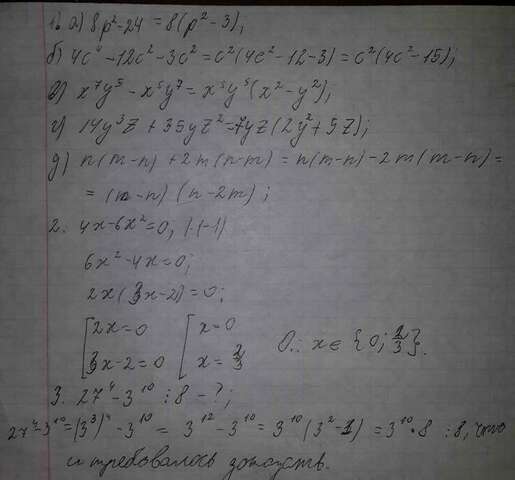 1. а) 8p²-24 = 8(p²-3);
б) 4c⁴-12c²-3c² = c²(4c²-12-3) = c²(4c²-15);
в) x⁷y⁵ - x⁵y⁷ = x⁵y⁵(x²-y²);
г) 14y³z + 35yz² = 7yz(2y²+5z);
д) n(m-n) + 2m(n-m) = n(m-n) - 2m(m-n) =
= (m-n)(n-2m);
2. 4x-6x²=0, |·(-1)
6x²-4x=0;
2x(3x-2)=0;
[2x=0 [x=0
3x-2=0 x=2/3 О.: x∈{0; 2/3}.
3. 27⁴-3¹⁰ ⋮ 8 - ?;
27⁴-3¹⁰=(3³)⁴-3¹⁰ = 3¹²-3¹⁰ = 3¹⁰(3²-1) = 3¹⁰·8 ⋮ 8, что
и требовалось доказать.